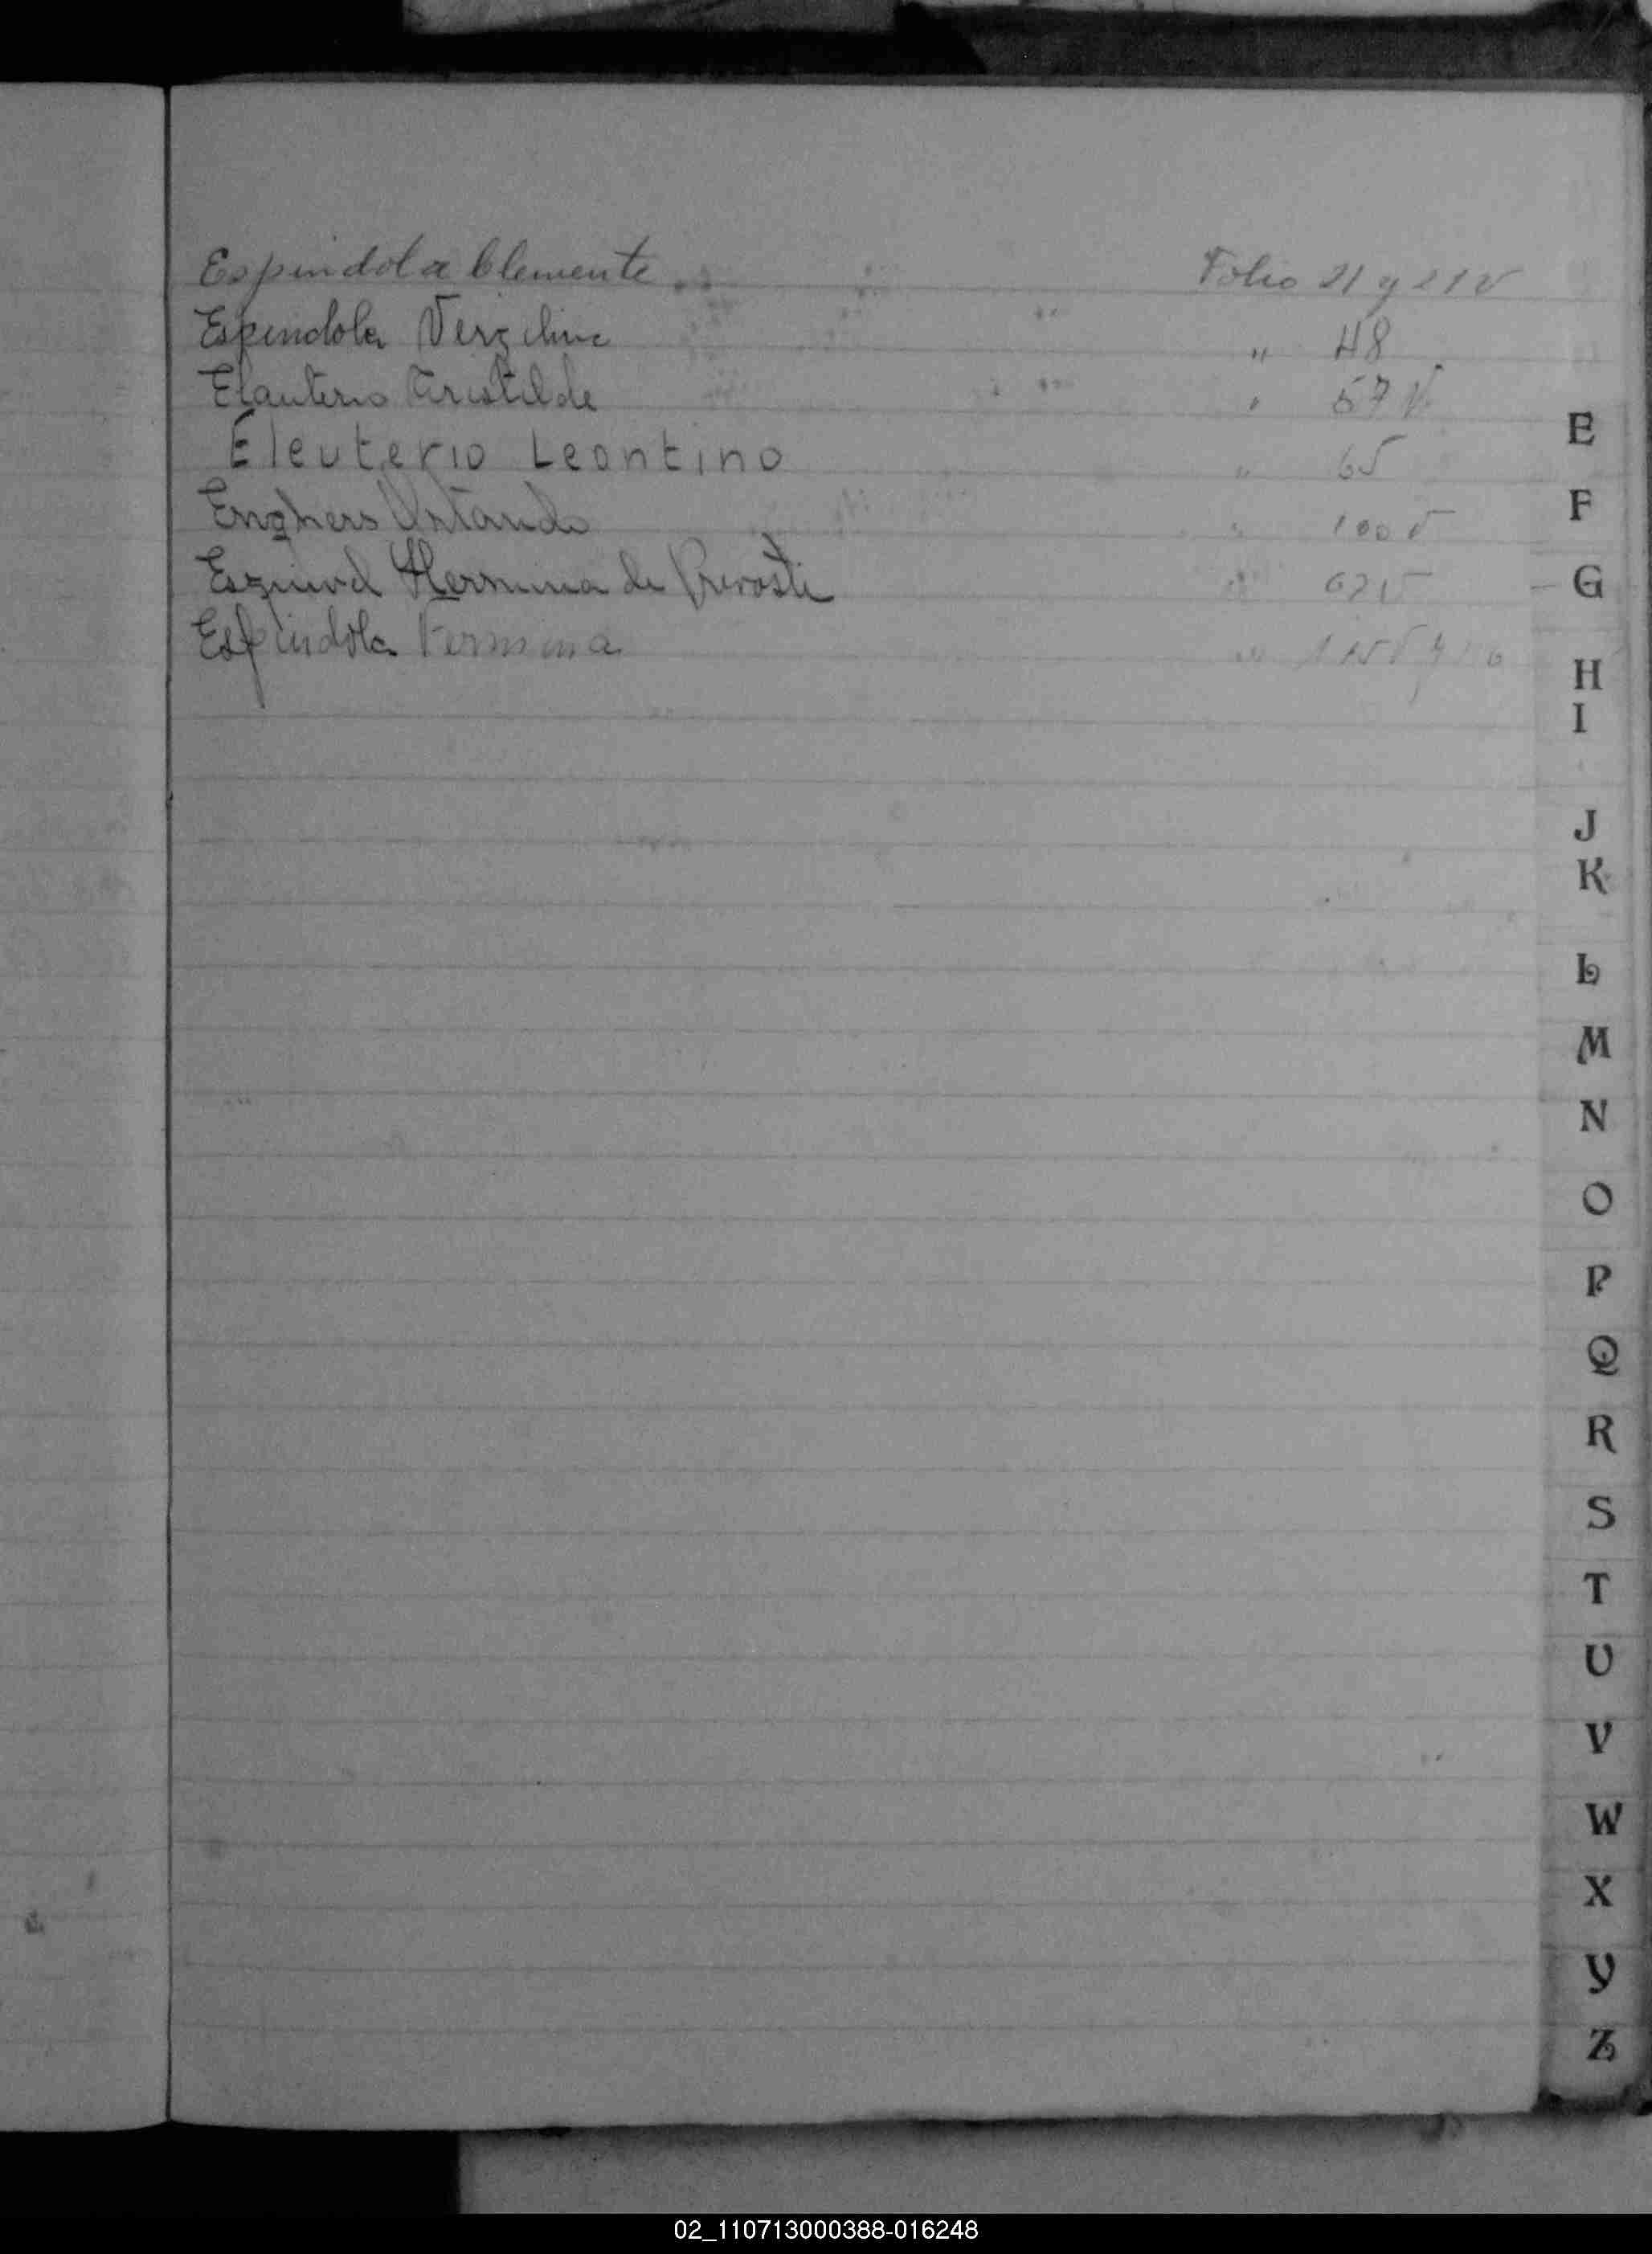 Espindola Clemente Folio 21 y 21 v
Espindola Virgilina " 48
Elauterio Aristilde " 57 V
Eleuterio Leontino " 65
Enghers Orlando " 100 V
Esquivel Herminia de Prevosti " 62 V
Espindola Fermina "
E
F
G
H
I
J
K
L
M
N
O
P
Q
R
S
T
U
V
W
X
Y
Z
02_110713000388-016248